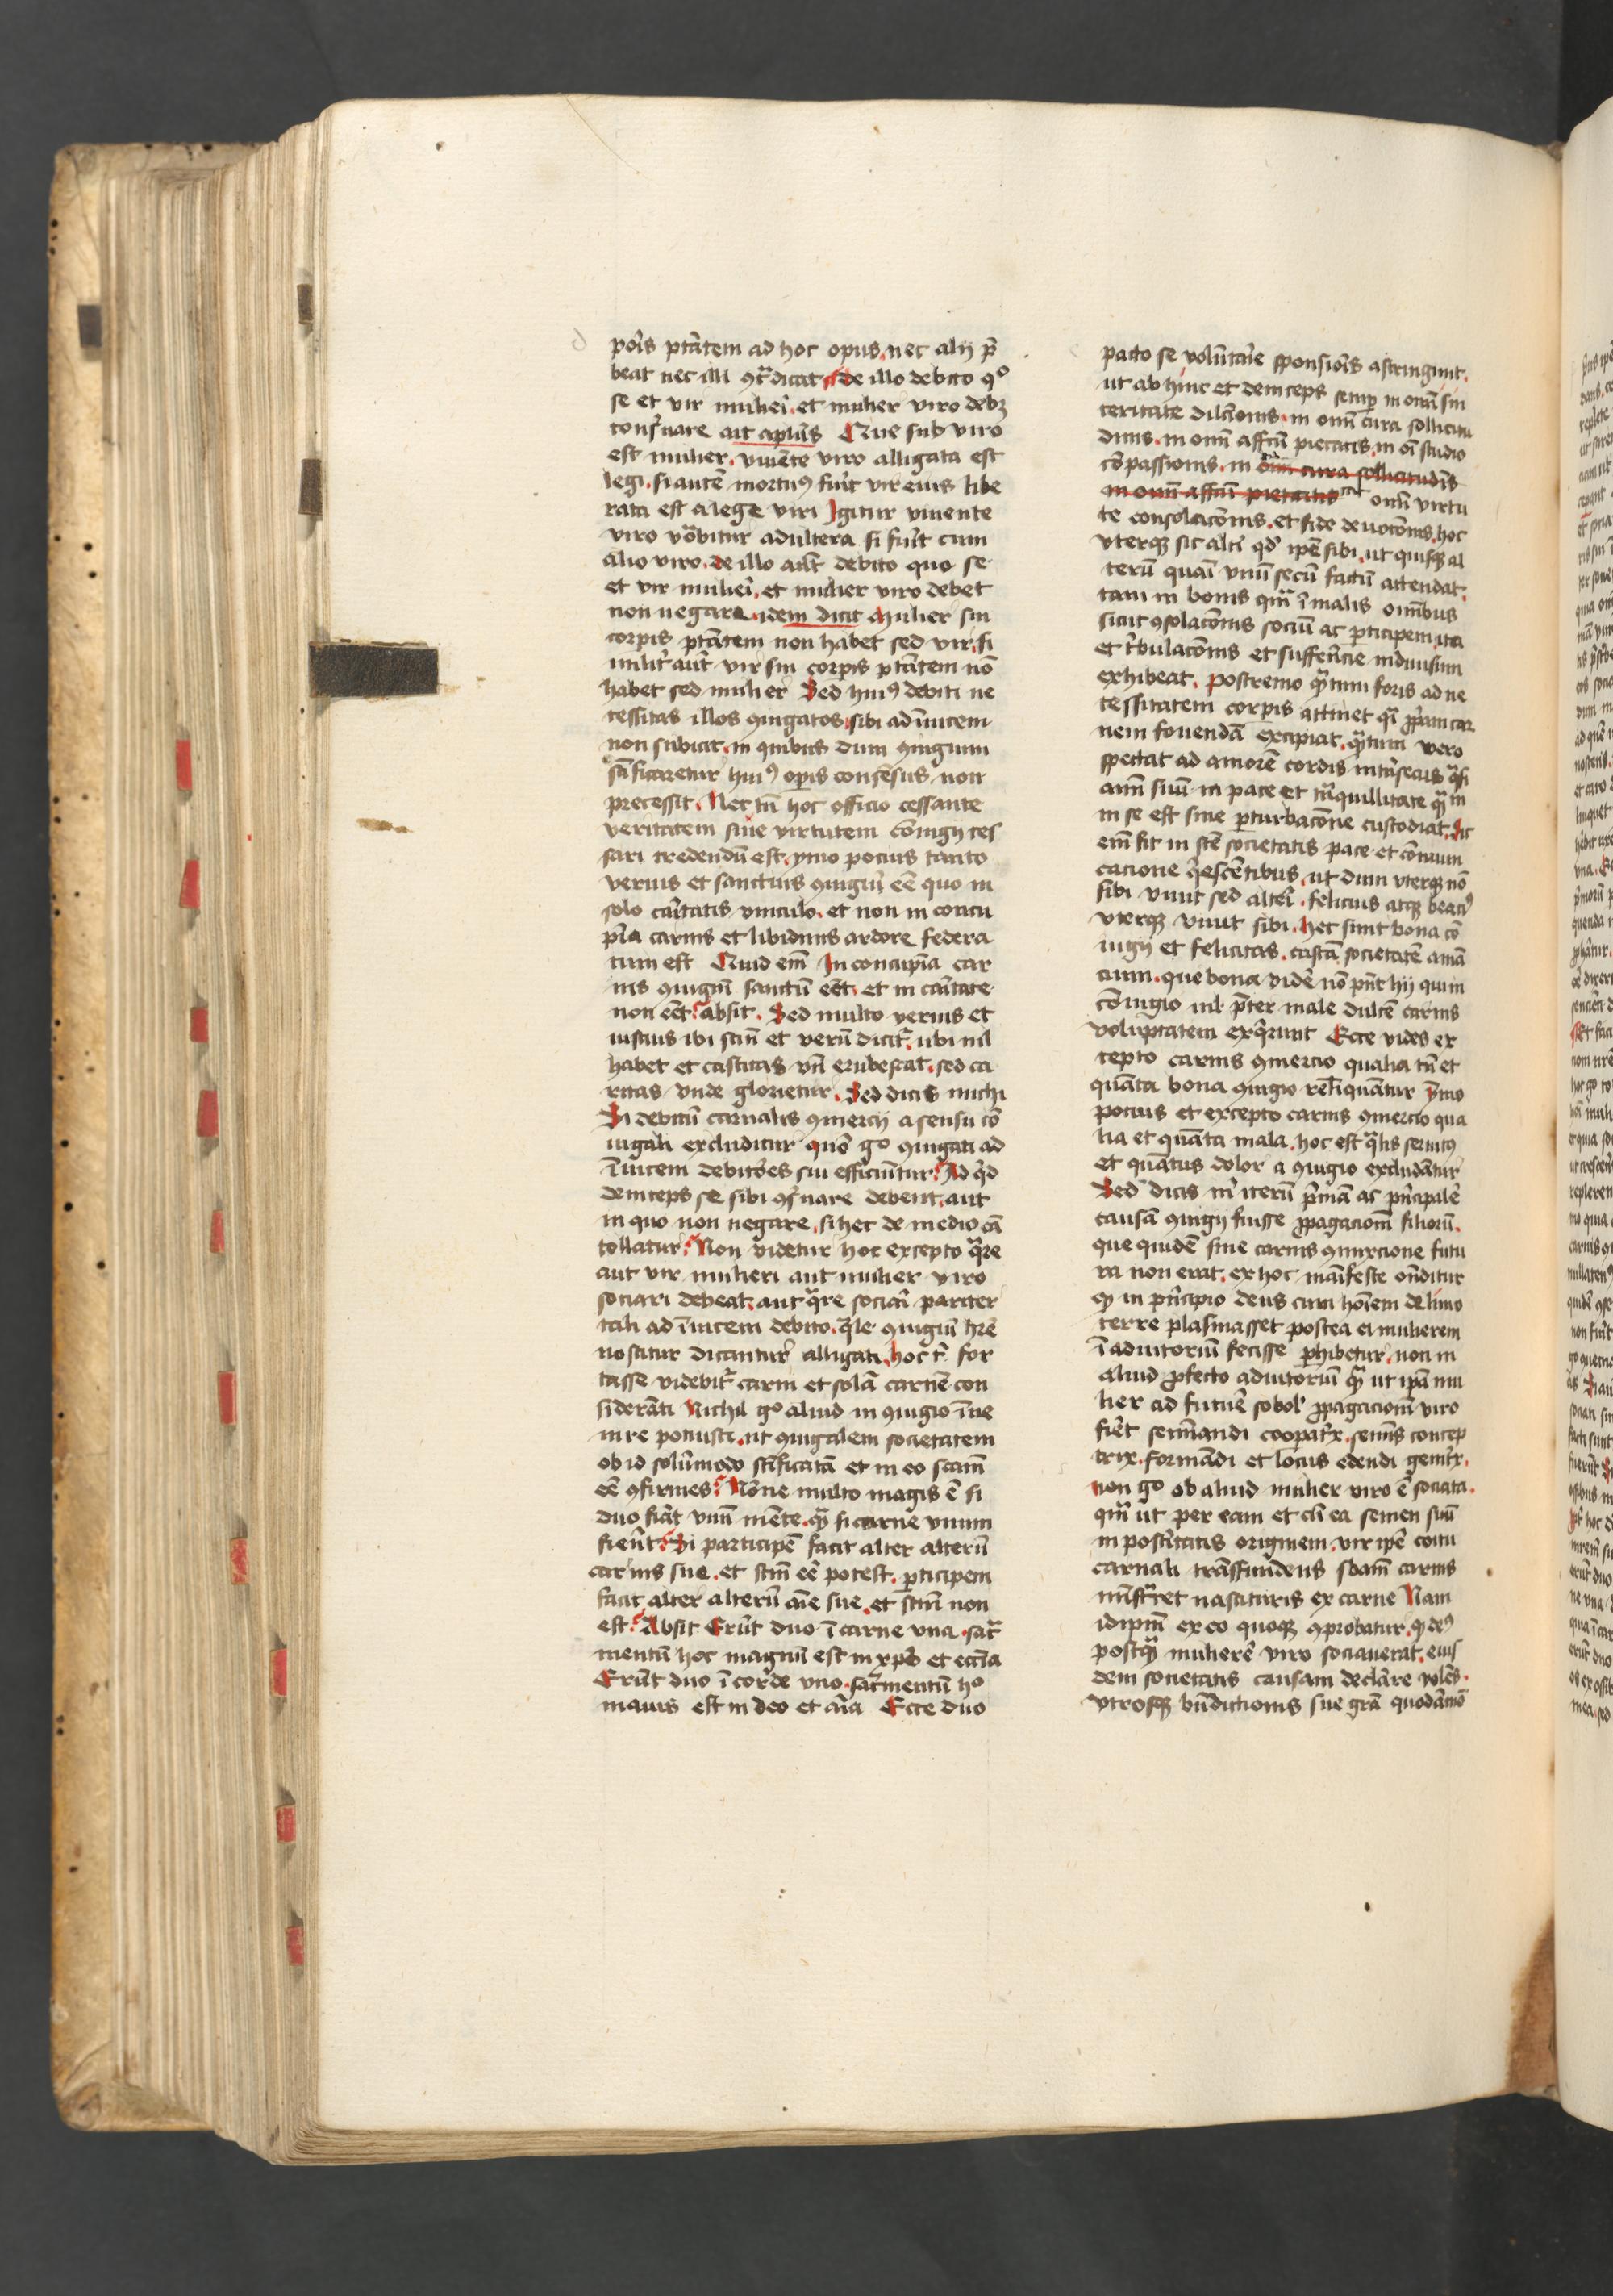 poris ptātem ad hoc opus, nec alij p̄
beat nec illi ꝯt̄dicat, de illo debito qº
se et vir mulieri, et mulier viro debꝫ
conẛuare ait aplūs Que sub viro
est mulier, viuēte viro alligata est
legi, si autē mortuꝰ fuit vir eius libe
rata est a lege viri Igitur viuente
viro vocabitur adultera si fuit cum
alio viro, de illo aut debito quo se
et vir mulieri, et mulier viro debet
non negare, idem dicit Mulier sui
corpis ptātem non habet sed vir, si
milit aut vir sui corpis ptātem nō
habet sed mulier Sed huiꝰ debiti ne
cessitas illos ꝯiugatos sibi ad īuicem
non subicit, in quibus dum ꝯiugium
scīficaretur huiꝰ opis consēsus non
precessit, Nec tn̄ hoc officio cessante
veritatem siue virtutem cōiugij ces
sari credendū est, ymo pocius tanto
verius et sanctius ꝯiugiū eē quo in
solo caritatis vinculo, et non in concu
pīa carnis et libidinis ardore federa
tum est Quid em̄ In concupīa car
nis ꝯiugiū sanctū eēt, et in caritate
non eēt, absit, Sed multo verius et
iustius ibi scm̄ et verū dicit, ubi nil
habet et castitas vn̄ erubescat, sed ca
ritas vnde glorietur, Sed dicis michi
Si debitū carnalis ꝯmercij a sensu cō
iugali excluditur quō gº ꝯiugati ad
īuicem debitores sui efficiūtur, Ad qd
deinceps se sibi ꝯẛuare debent, aut
in quo non negare, si hec de medio cā
tollatur, Non videtur hoc excepto qͣre
aut vir mulieri aut mulier viro
sociari debeat, aut qͣre sociati pariter
tali ad īuicem debito, qͣle ꝯiugiū hr̄e
noscitur dicantur alligati, hoc t̄ for
tasse videbit̄ carni et solā carnē con
siderāti Nichil gº aliud in ꝯiugio īue
nire potuisti, ut ꝯiugalem societatem
ob id solūmodo scīficatā et in eo scām
eē ꝯfirmes, Nōne multo magis ē si
duo fiāt vnū mēte, qͣ si carne vnum
fierit, Si participē facit alter alterū
carnis sue, et scm̄ eē potest, pticipem
facit alter alterū aīe sue, et scm̄ non
est, Absit Erūt duo ī carne vna, sac̄
mentū hoc magnū est in xp̄o et eccīa
Erūt duo ī corde vno, sac̄mentū hº
maius est in deo et aīa Ecce duo
pacto se volūtarie sponsiōis astringunt,
ut ab hinc et deinceps semꝑ in omī sin
ceritate dilcōnis, in omī cura sollicitu
dinis, in omī affcū pietatis, in oī studio
cōpassionis, in omī cura sollicitudīs
in omī affcū pietatis omī virtu
te consolacōnis, et fide deuotōnis, hoc
vterqꝫ sic alti qd ipē sibi, ut quisqꝫ al
terū quasi vnū secū factū attendat,
tam in bonis qm̄ ī malis omībus
sicut ꝯsolacōnis sociū ac pticipem, ita
et tbulacōnis et sufferēcie indiuisum
exhibeat, postremo qͣtum foris ad ne
cessitatem corpis attinet qͣ ꝓpriam car
nem fouendā excipiat, qͣtum vero
spectat ad amorē cordis intrinsecus qͣsi
aīm suū in pace et tnquillitate qͣtū
in se est sine perturbacōne custodiat, sic
em̄ fit in scē societatis pace et cōmuni
cacione qescētibus, ut dum vterqꝫ nō
sibi viuit sed alteri, felicius atqꝫ beatiꝰ
vterqꝫ viuit sibi, hec sunt bona cō
iugij et felicitas, castā societatē amā
cium, que bona videre nō pn̄t hij qui in
cōiugio nil pter male dulcē carnis
voluptatem exqͥrunt Ecce vides ex
cepto carnis ꝯmercio qualia tn̄ et
quāta bona ꝯiugio reliquātur ymo
pocius et excepto carnis ꝯmercio qua
lia et quāta mala, hoc est qͣlis seruitꝰ
et quātus dolor a ꝯiugio excludātur
Sed dicis m iterū pͥmā ac pncipalē
causā ꝯiugij fuisse ꝓpagacionē filiorū,
que quidē sine carnis ꝯmixcione futu
ra non erat, ex hoc manifeste on̄ditur
qꝫ in pncipio deus cum hoīem de limo
terre plasmasset postea ei mulierem
ī adiutoriū fecisse phibetur, non in
aliud ꝓfecto adiutoriū qͣ ut ipā mu
lier ad futurē sobol ꝓpagacionē viro
fieret semīnandi cooptrix, semīs concep
trix, formādi et locus edendi genitrix,
non gº ob aliud mulier viro ē sociata,
qm̄ ut per eam et cū ea semen suū
in postitatis originem, vir ipē coitu
carnali trāsfundens sbam̄ carnis
minīstraret nascituris ex carne Nam
idipm̄ ex eo quoqꝫ ꝯprobatur, qꝫ deꝰ
postqͣ mulierē viro sociauerat, eius
dem societatis causam declāre volēs,
vtrosqꝫ bn̄dictionis sue grā quodāmō